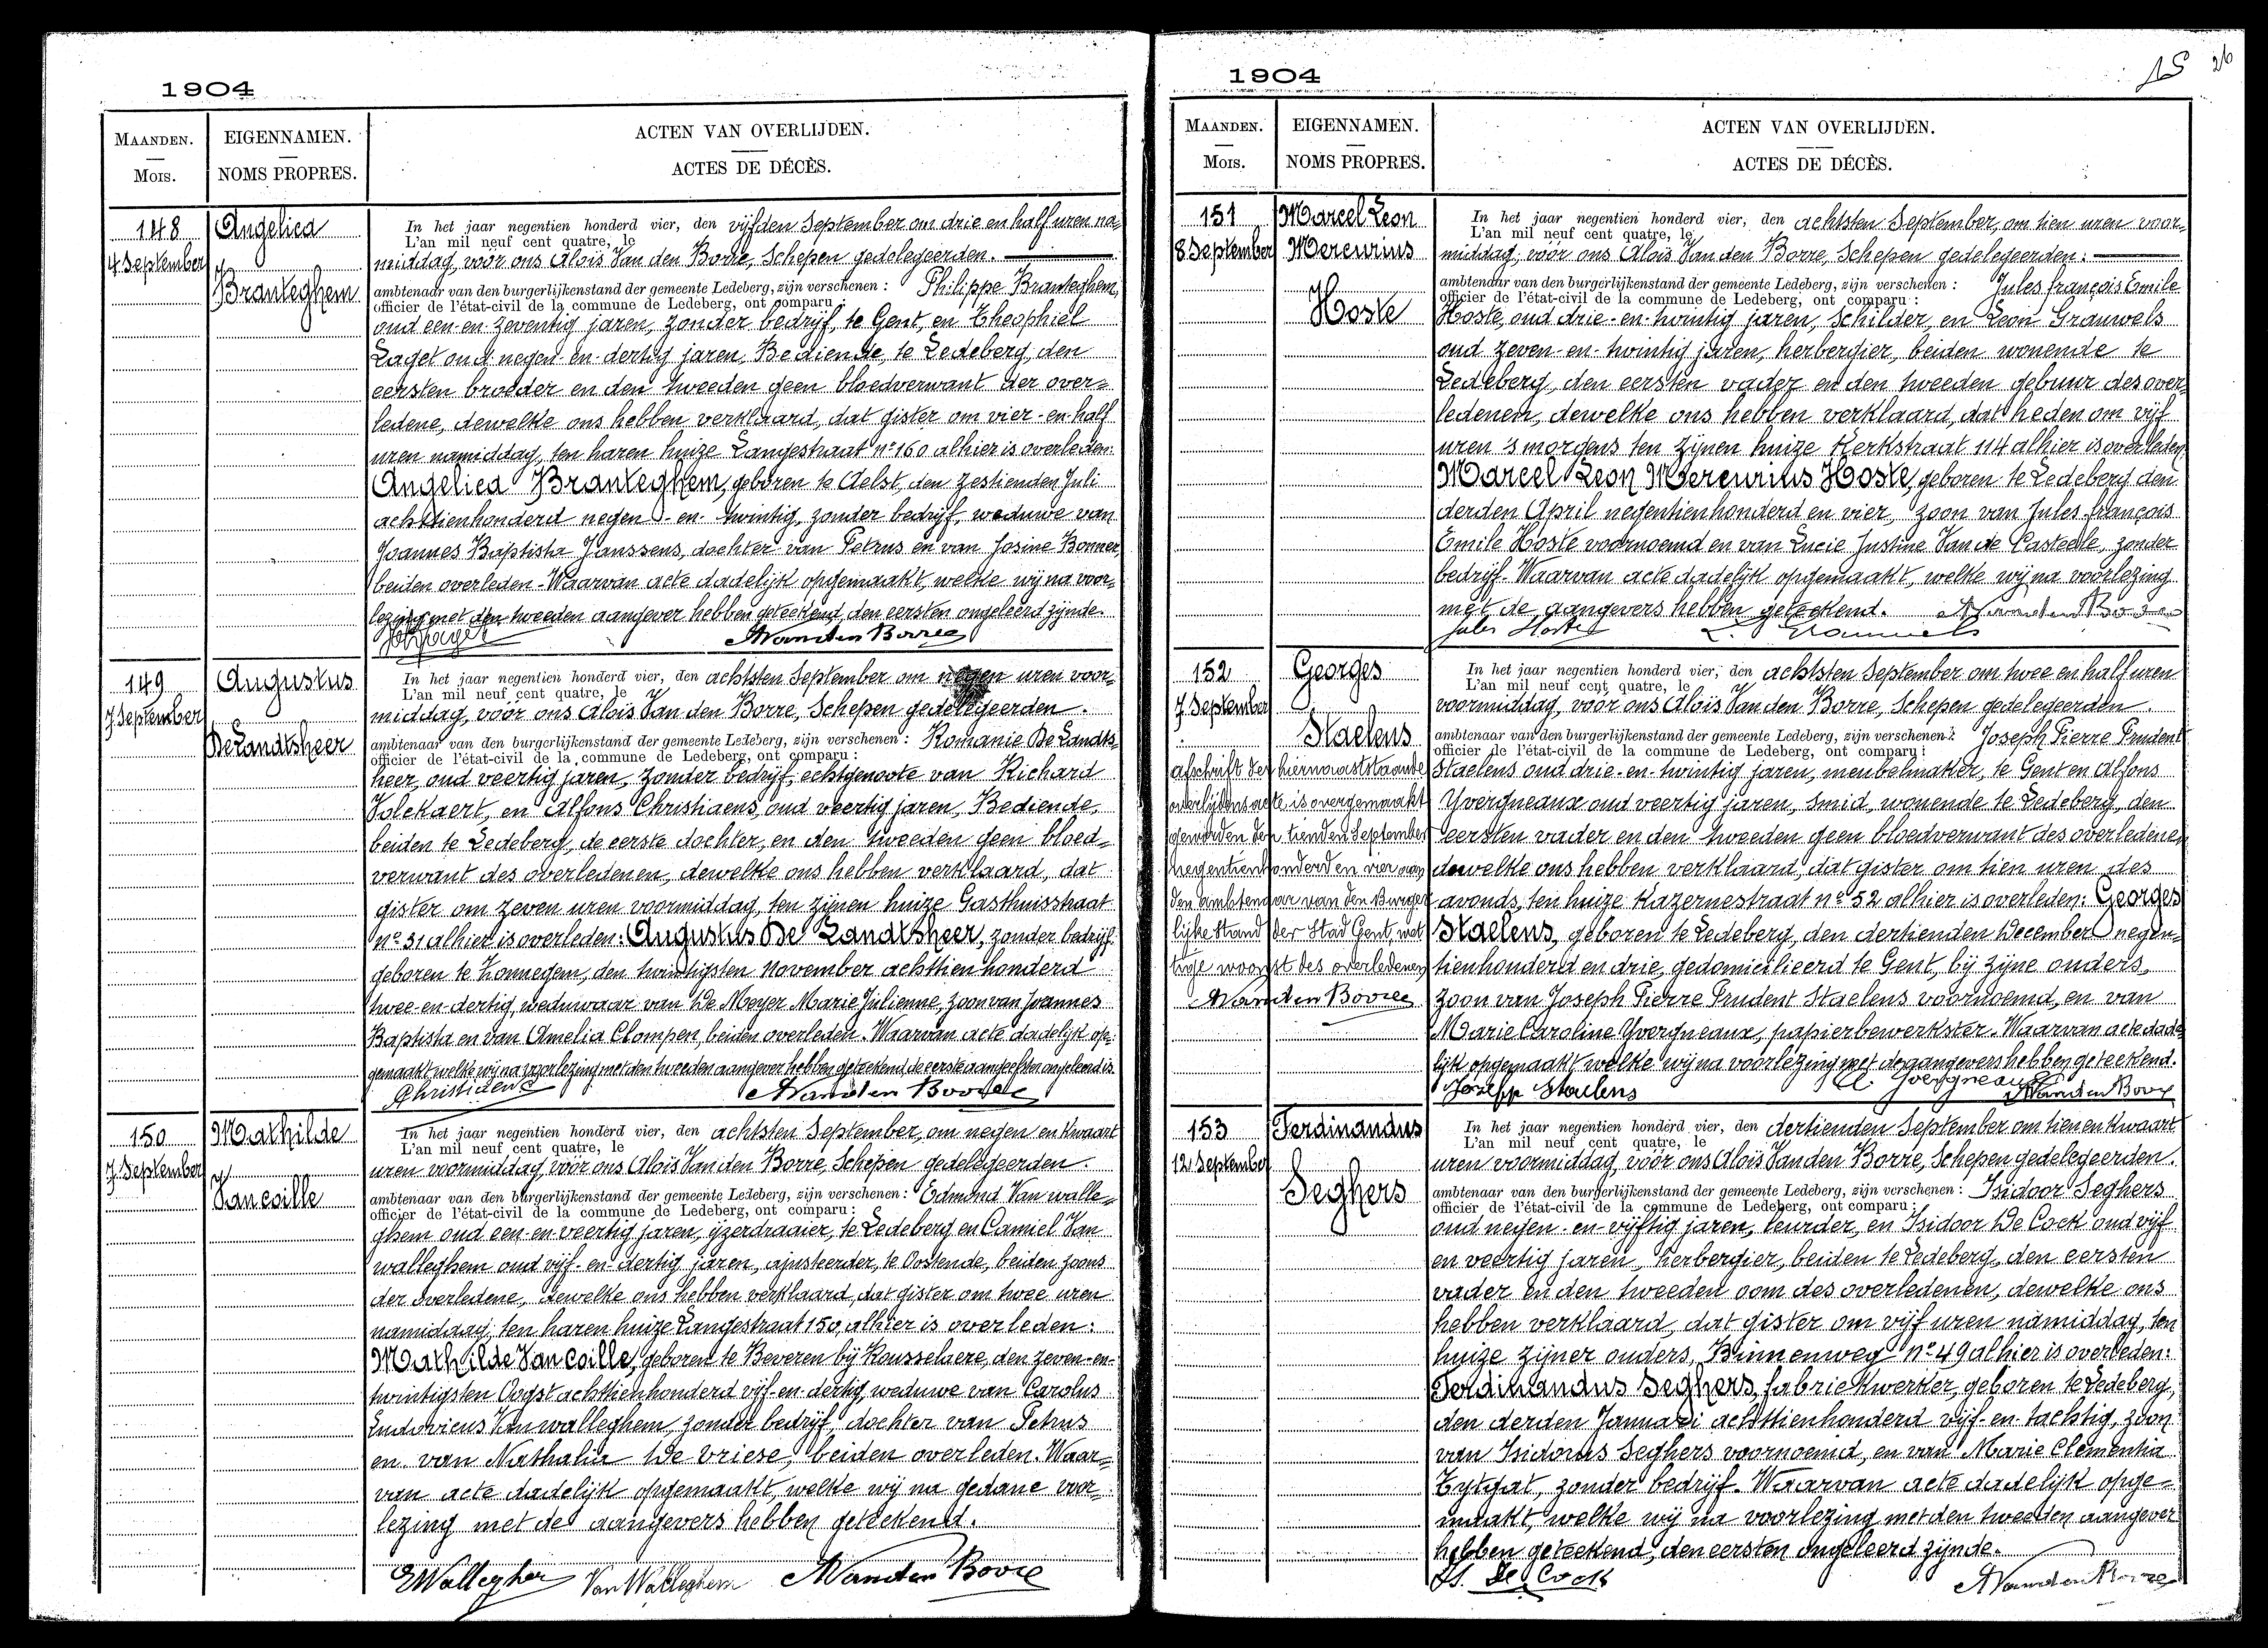 1904
MAANDEN.
Mois.
EIGENNAMEN.
NOMS PROPRES.
ACTEN VAN OVERLIJDEN.
ACTES DE DÉCÈS.
148
4 September
Angelica
Branteghem
In het jaar negentien honderd vier, den vijfden September om drie en half uren na=
L'an mil neuf cent quatre, le
middag, vóór ons Aloïs Van den Borre, Schepen gedelegeerden.
ambtenaar van den burgerlijkenstand der gemeente Ledeberg, zijn verschenen : Philippe Branteghem,
officier de l'état-civil de la commune de Ledeberg, ont comparu :
oud een-en-zeventig jaren, zonder bedrijf, te Gent, en Theophiel
Laget oud negen-en-dertig jaren, Bediende, te Ledeberg, den
eersten broeder en den tweeden geen bloedverwant der over=
ledene, dewelke ons hebben verklaard, dat gister om vier-en-half
uren namiddag, ten haren huize Langestraat nº 160 alhier is overleden:
Angelica Branteghem, geboren te Aelst, den zestienden Juli
achttienhonderd negen-en-twintig, zonder bedrijf, weduwe van
Joannes Baptista Janssens, dochter van Petrus en van Josine Bonner,
beiden overleden. Waarvan acte dadelijk opgemaakt, welke wij na voor=
lezing met den tweeden aangever hebben geteekend, den eersten ongeleerd zijnde.
AVanden Borre
149
7 September
Augustus
De Landtsheer
In het jaar negentien honderd vier, den achtsten September om negen uren voor=
L'an mil neuf cent quatre, le
middag, vóór ons Aloïs Van den Borre, Schepen gedelegeerden.
ambtenaar van den burgerlijkenstand der gemeente Ledeberg, zijn verschenen : Romanie De Landts=
officier de l'état-civil de la commune de Ledeberg, ont comparu :
heer, oud veertig jaren, zonder bedrijf, echtgenoote van Richard
Volckaert, en Alfons Christiaens, oud veertig jaren, Bediende,
beiden te Ledeberg, de eerste dochter, en den tweeden geen bloed=
verwant des overledenen, dewelke ons hebben verklaard, dat
gister om zeven uren voormiddag, ten zijnen huize Gasthuisstraat
nº 31 alhier is overleden: Augustus De Landtsheer, zonder bedrijf,
geboren te Zonnegem, den twintigsten November achttienhonderd
twee-en-dertig, weduwaar van De Meyer Marie Julienne, zoon van Joannes
Baptista en van Amelia Clompen, beiden overleden. Waarvan acte dadelijk op=
gemaakt, welke wij na voorlezing met den tweeden aangever hebben geteekend, de eerste aangeefster ongeleerd is.
Christiaens AVanden Borre
150
7 September
Mathilde
Van coille
In het jaar negentien honderd vier, den achtsten September, om negen en kwaart
L'an mil neuf cent quatre, le
uren voormiddag, vóór ons Aloïs Van den Borre, Schepen gedelegeerden.
ambtenaar van den burgerlijkenstand der gemeente Ledeberg, zijn verschenen : Edmond Van walle=
officier de l'état-civil de la commune de Ledeberg, ont comparu :
ghem oud een-en-veertig jaren, ijzerdraaier, te Ledeberg en Camiel Van
walleghem oud vijf-en-dertig jaren, ajusteerder, te Oostende, beiden zoons
der overledene, dewelke ons hebben verklaard, dat gister om twee uren
namiddag, ten haren huize Langestraat 150, alhier is overleden:
Mathilde Van coille, geboren te Beveren bij Rousselaere, den zeven-en-
twintigsten Oogst achttienhonderd vijf-en-dertig, weduwe van Carolus
Ludovicus Van walleghem, zonder bedrijf, dochter van Petrus
en van Nathalia De Vriese, beiden overleden. Waar=
van acte dadelijk opgemaakt, welke wij na gedane voor=
lezing met de aangevers hebben geteekend.
EWalleghem VanWalleghem AVanden Borre
1904
26
MAANDEN.
Mois.
EIGENNAMEN.
NOMS PROPRES.
ACTEN VAN OVERLIJDEN.
ACTES DE DÉCÈS.
151
8 September
Marcel Leon
Mercurius
Hoste
In het jaar negentien honderd vier, den achtsten September, om tien uren voor=
L'an mil neuf cent quatre, le
middag, vóór ons Aloïs Van den Borre, Schepen gedelegeerden:
ambtenaar van den burgerlijkenstand der gemeente Ledeberg, zijn verschenen : Jules françois Emile
officier de l'état-civil de la commune de Ledeberg, ont comparu :
Hoste, oud drie-en-twintig jaren, Schilder, en Leon Grauwels
oud zeven-en-twintig jaren, herbergier, beiden wonende te
Ledeberg, den eersten vader en den tweeden gebuur des over=
ledenen, dewelke ons hebben verklaard, dat heden om vijf
uren 's morgens ten zijnen huize Kerkstraat 114 alhier is overleden:
Marcel Leon Mercurius Hoste, geboren te Ledeberg den
derden April negentienhonderd en vier, zoon van Jules françois
Emile Hoste voornoemd en van Lucie Justine Van de Casteele, zonder
bedrijf. Waarvan acte dadelijk opgemaakt, welke wij na voorlezing
met de aangevers hebben geteekend. AVanden Borre
Jules Hoste L. Grauwels
152
7 September
Georges
Staelens
afschrift der hiernaaststaande
overlijdensacte is overgemaakt
geworden den tienden September
negentienhonderd en vier aan
den ambtenaar van den Burger=
lijke Stand der Stad Gent, wet=
tige woonst des overledenen
AVanden Borre
In het jaar negentien honderd vier, den achtsten September om twee en half uren
L'an mil neuf cent quatre, le
voormiddag, vóór ons Aloïs Van den Borre, Schepen gedelegeerden.
ambtenaar van den burgerlijkenstand der gemeente Ledeberg, zijn verschenen : Joseph Pierre Prudent
officier de l'état-civil de la commune de Ledeberg, ont comparu :
Staelens oud drie-en-twintig jaren, meubelmaker, te Gent en Alfons
Yvergneaux oud veertig jaren, Smid, wonende te Ledeberg, den
eersten vader en den tweeden geen bloedverwant des overledenen,
dewelke ons hebben verklaard, dat gister om tien uren des
avonds, ten huize Kazernestraat nº 52 alhier is overleden: Georges
Staelens, geboren te Ledeberg, den dertienden December negen=
tienhonderd en drie, gedomicilieerd te Gent, bij zijne ouders,
zoon van Joseph Pierre Prudent Staelens voornoemd, en van
Marie Caroline Yvergneaux, papierbewerkster. Waarvan acte dade=
lijk opgemaakt welke wij na voorlezing met de aangevers hebben geteekend.
Joseph Staelens A. Yvergneaux AVanden Borre
153
12 September
Ferdinandus
Seghers
In het jaar negentien honderd vier, den dertienden September om tien en kwaart
L'an mil neuf cent quatre, le
uren voormiddag, vóór ons Aloïs Van den Borre, Schepen gedelegeerden.
ambtenaar van den burgerlijkenstand der gemeente Ledeberg, zijn verschenen : Isidoor Seghers
officier de l'état-civil de la commune de Ledeberg, ont comparu :
oud negen-en-vijftig jaren, leurder, en Isidoor De Cock oud vijf
en veertig jaren, herbergier, beiden te Ledeberg, den eersten
vader en den tweeden oom des overledenen, dewelke ons
hebben verklaard, dat gister om vijf uren namiddag, ten
huize zijner ouders, Binnenweg nº 49 alhier is overleden:
Ferdinandus Seghers, fabriekwerker, geboren te Ledeberg,
den derden Januari achttienhonderd vijf-en-tachtig, zoon
van Isidorus Seghers voornoemd, en van Marie Clementia
Tytgat, zonder bedrijf. Waarvan acte dadelijk opge=
maakt, welke wij na voorlezing met den tweeden aangever
hebben geteekend, den eersten ongeleerd zijnde.
Is. De Cock AVanden Borre